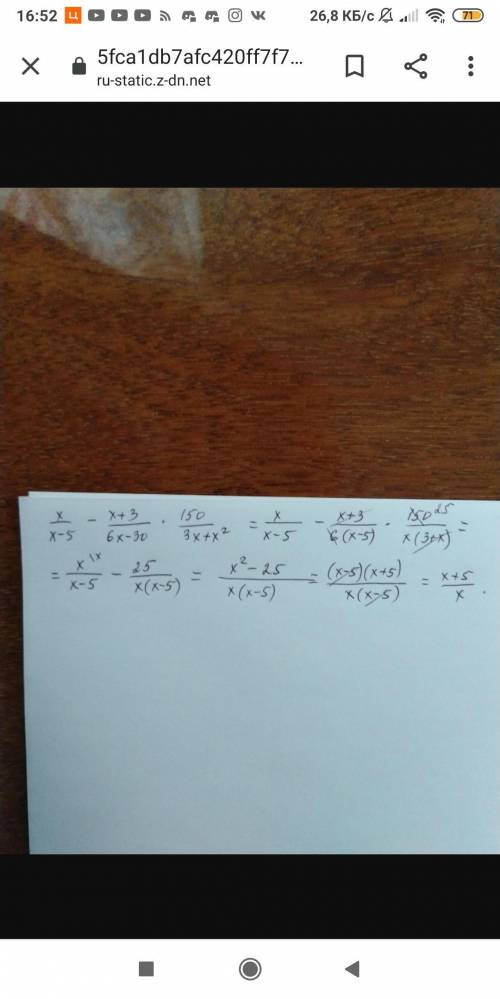 16:52 26,8 КБ/с 71
5fca1db7afc420ff7f7...
ru-static.z-dn.net
x/(x-5) - (x+3)/(6x-30) · 150/(3x+x²) = x/(x-5) - (x+3)/(6(x-5)) · 150 25/(x(3+x)) =
= x \x/(x-5) - 25/(x(x-5)) = (x²-25)/(x(x-5)) = (x-5)(x+5)/(x(x-5)) = (x+5)/x .